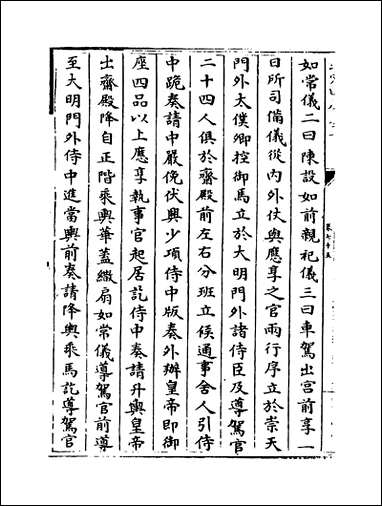 如常儀二曰陳設如前親祀儀三曰車駕出宮前享一
日所司備儀從内外仗與應享之官兩行序立於崇天
門外太僕卿控御馬立於大明門外諸侍臣及導駕官
二十四人俱於齋殿前左右分班立候通事舍人引侍
中跪奏請中嚴俛伏興少頃侍中版奏外辦皇帝即御
座四品以上應享執事官起居訖侍中奏請升輿皇帝
出齋殿降自正階乘輿華蓋繖扇如常儀導駕官前導
至大明門外侍中進當輿前奏請降輿乘馬訖導駕官